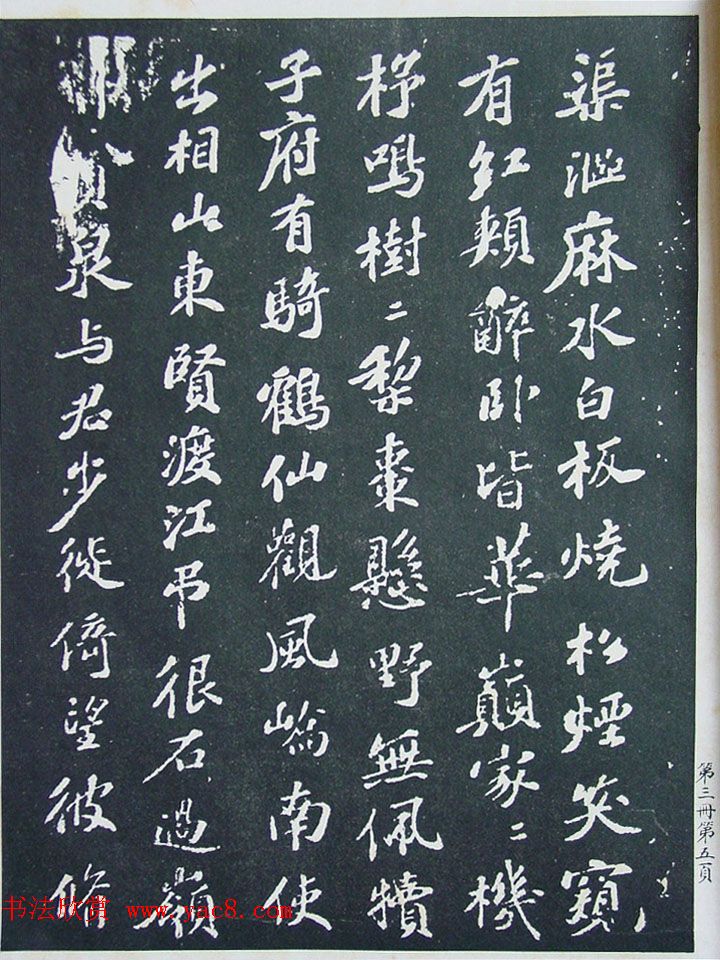 渠麻水白板燒松煙笑窺
有紅頰醉卧皆華巔家〻機
杼鳴樹〻梨棗懸野無佩犢
子府有騎鶴仙觀風嶠南使
出相山東賢渡江弔很石過嶺
泉与君步徙倚望彼脩
第三冊第五頁
书法欣赏 www.yac8.com